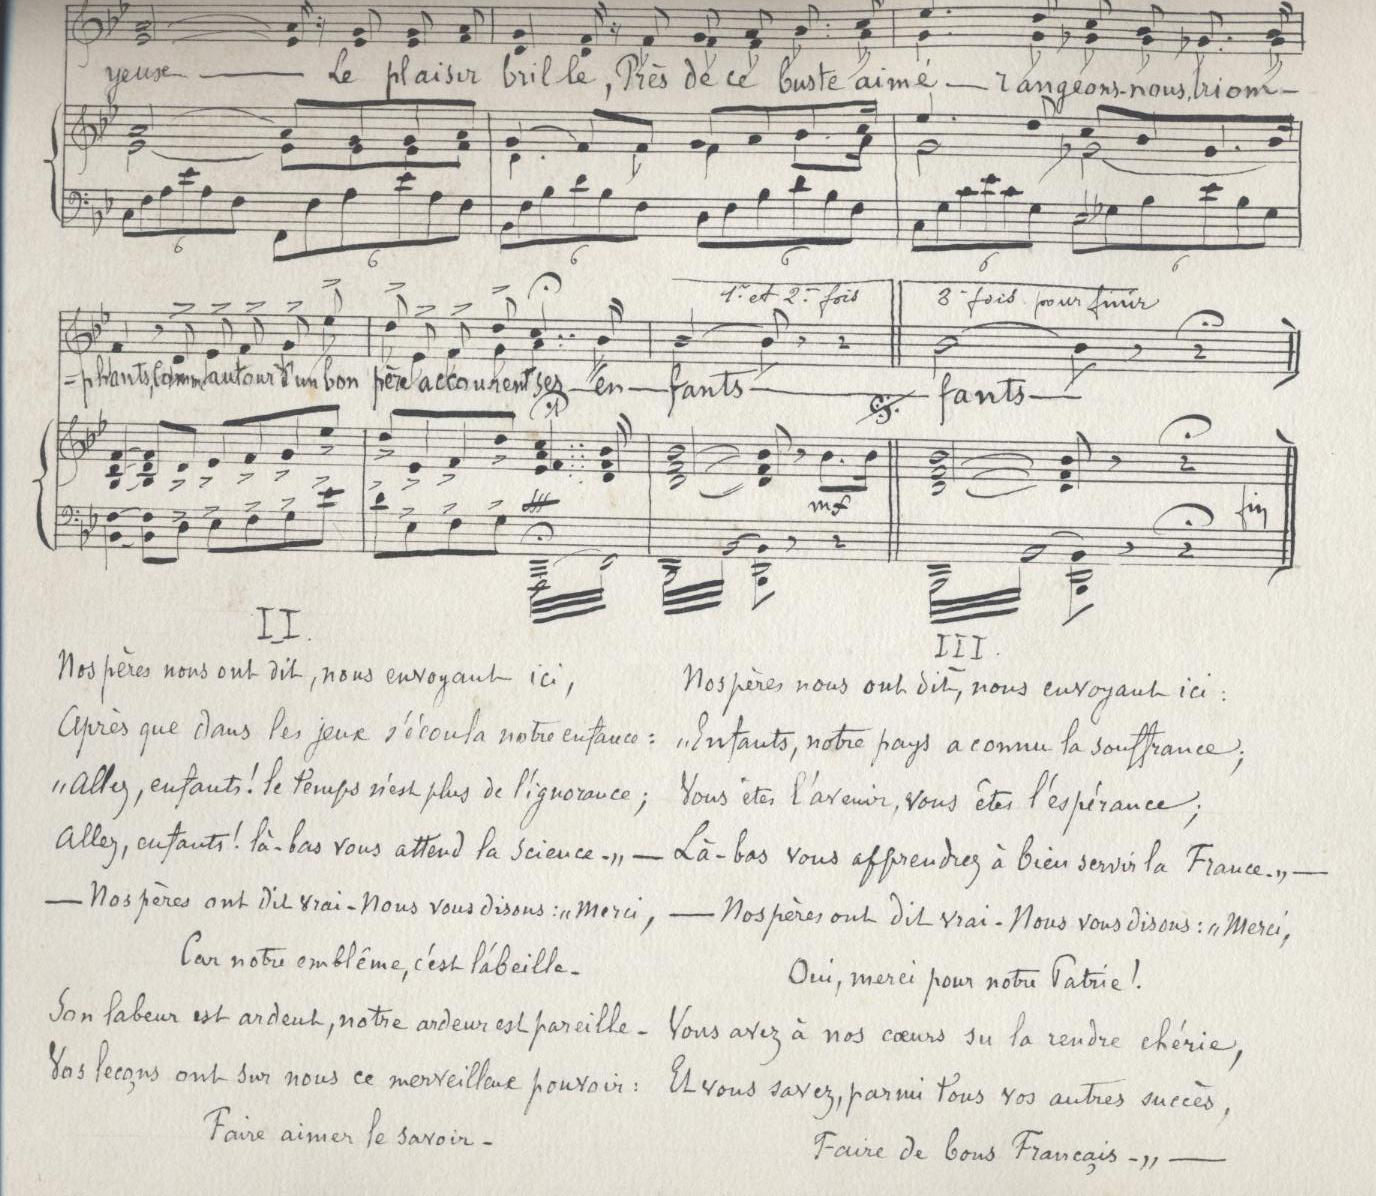 yeuse — Le plaisir brille, Près de ce buste aimé — rangeons-nous, triom-
6 6 6 6 6 6
1re et 2me fois 3me fois pour finir
-phants, Comm' autour d'un bon père accourent ses en-fants — fants —
mf fin
II.
Nos pères nous ont dit, nous envoyant ici,
Après que dans les jeux s'écoula notre enfance:
"Allez, enfants! le temps n'est plus de l'ignorance;
Allez, enfants! là-bas vous attend la Science.„ —
— Nos pères ont dit vrai - Nous vous disons: „Merci,
Car notre emblême, c'est l'abeille -
Son labeur est ardent, notre ardeur est pareille -
Vos leçons ont sur nous ce merveilleux pouvoir:
Faire aimer le savoir -
III.
Nos pères nous ont dit, nous envoyant ici:
„Enfants, notre pays a connu la souffrance;
Vous êtes l'avenir, vous êtes l'espérance;
Là-bas vous apprendrez à bien servir la France.„ —
— Nos pères ont dit vrai - Nous vous disons: „Merci,
Oui, merci pour notre Patrie!
Vous avez à nos cœurs su la rendre chérie,
Et vous savez, parmi tous vos autres succès,
Faire de bons Français -„ —